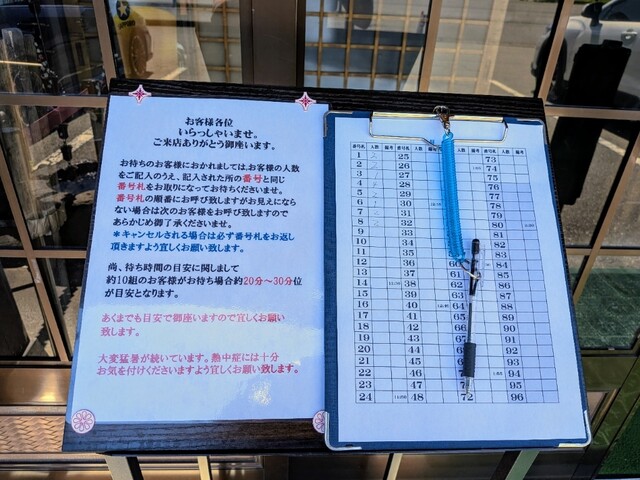 お客様各位
いらっしゃいませ。
ご来店ありがとう御座います。
お待ちのお客様におかれましては、お客様の人数
をご記入のうえ、記入された所の番号と同じ
番号札をお取りになってお待ちくださいませ。
番号札の順番にお呼び致しますがお見えになら
ない場合は次のお客様をお呼び致しますので
あらかじめ御了承くださいませ。
*キャンセルされる場合は必ず番号札をお返し
頂きますよう宜しくお願い致します。
尚、待ち時間の目安に関しまして
約10組のお客様がお待ち場合約20分~30分位
が目安となります。
あくまでも目安で御座いますので宜しくお願い
致します。
大変猛暑が続いています。熱中症には十分
お気を付けくださいますよう宜しくお願い致します。
番号札 人数 備考 番号札 人数 備考 人数 備考 番号札 人数 備考
1 25 73
2 26 74
3 27 75
4 28 76
5 29 77
6 30 78
7 31 79
8 32 80
9 33 81
10 34 82
11 35 83
12 36 60 84
13 37 61 85
14 38 62 86
15 39 63 87
16 40 64 88
17 41 65 89
18 42 66 90
19 43 91
20 44 92
21 45 93
22 46 94
23 47 95
24 48 72 96